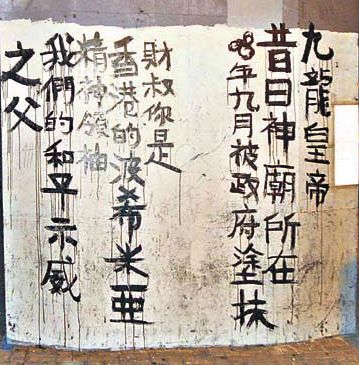 九龍皇帝
昔日神廟所在
08年九月被政府塗抹
財叔你是
香港的波希米亜
精神領袖
我們的和平示威
之父